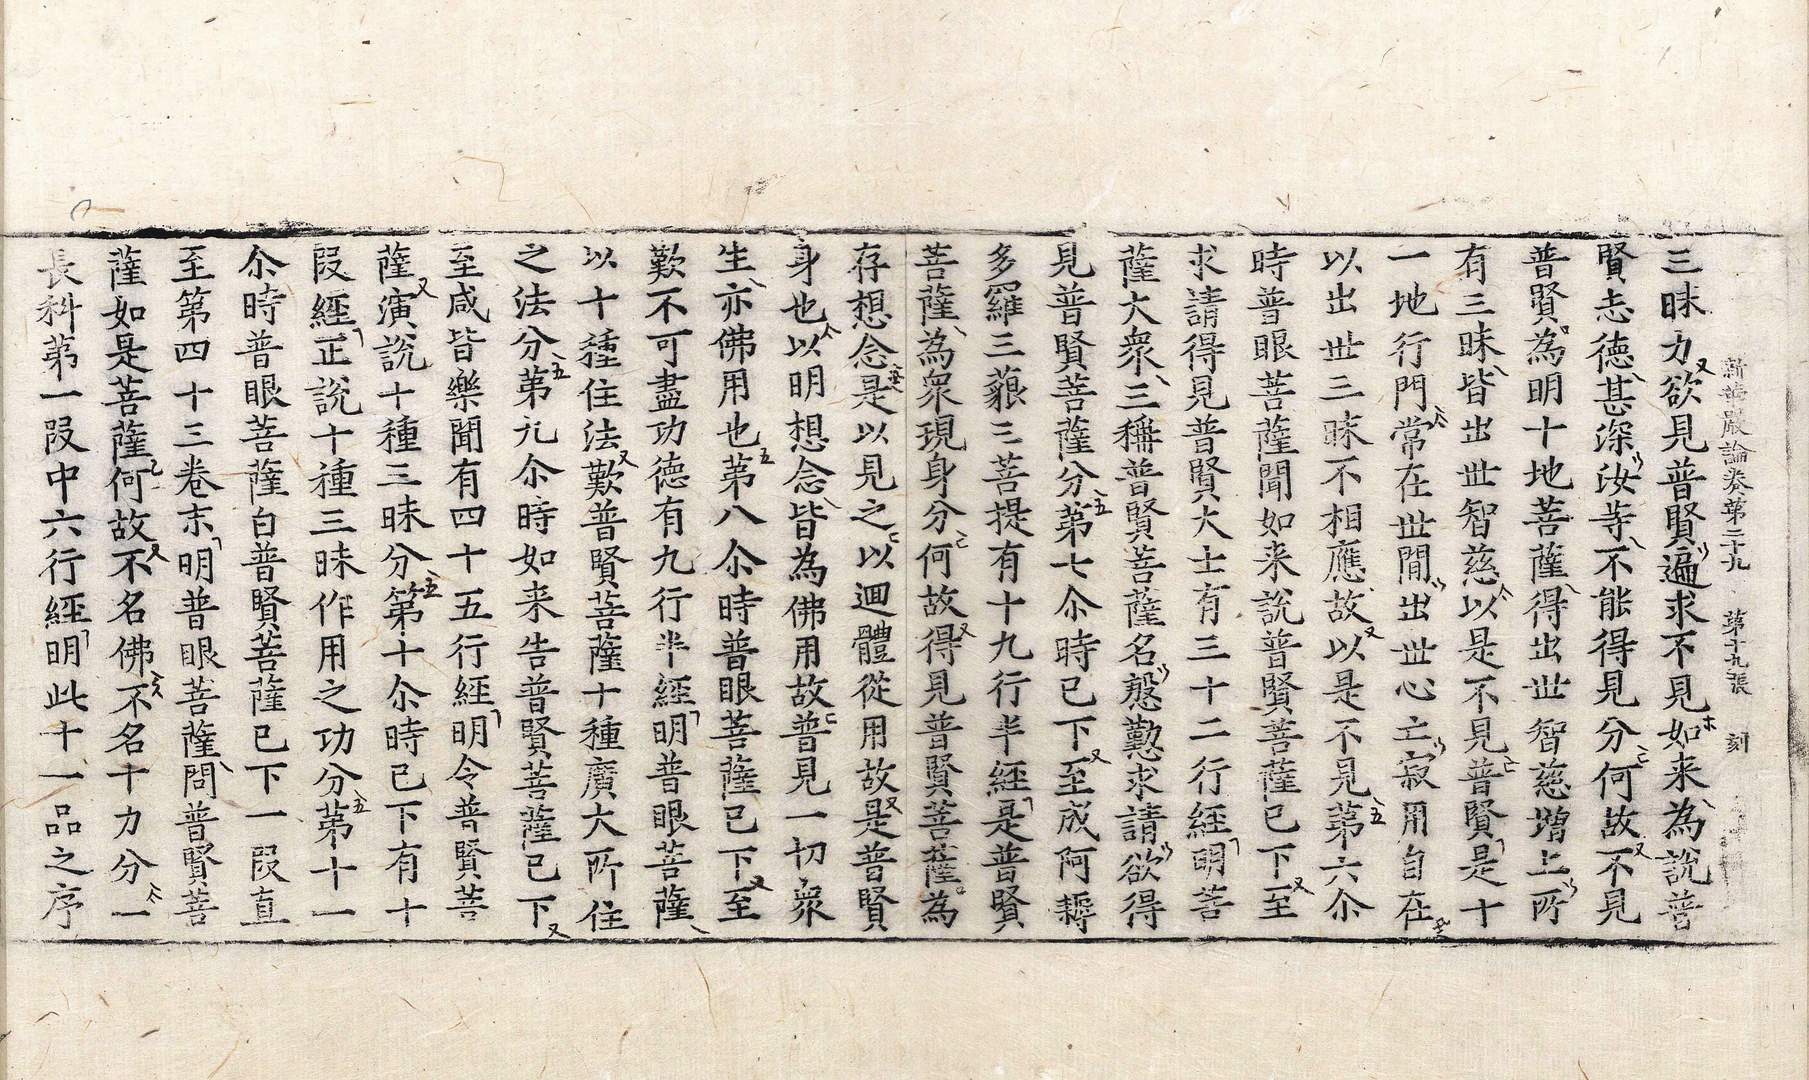 新華嚴論卷第二十九　第十九張　刻
三昧力欲見普賢遍求不見如来為說普
賢志德甚深汝等不能得見分何故不見
普賢為明十地菩薩得出世智慈增上所
有三昧皆出世智慈以是不見普賢是十
一地行門常在世間出世心亡寂用自在
以出世三昧不相應故以是不見第六尒
時普眼菩薩聞如来說普賢菩薩已下至
求請得見普賢大士有三十二行經明菩
薩大衆三稱普賢菩薩名慇懃求請欲得
見普賢菩薩分第七尒時已下至成阿耨
多羅三藐三菩提有十九行半經是普賢
菩薩為衆現身分何故得見普賢菩薩為
存想念是以見之以迴體從用故是普賢
身也以明想念皆為佛用故普見一切衆
生亦佛用也第八尒時普眼菩薩已下至
歎不可盡功德有九行半經明普眼菩薩
以十種住法歎普賢菩薩十種廣大所住
之法分第九尒時如来告普賢菩薩已下
至咸皆樂聞有四十五行經明令普賢菩
薩演說十種三昧分第十尒時已下有十
段經正說十種三昧作用之功分第十一
尒時普眼菩薩白普賢菩薩已下一段直
至第四十三卷末明普眼菩薩問普賢菩
薩如是菩薩何故不名佛不名十力分一
長科第一段中六行經明此十一品之序